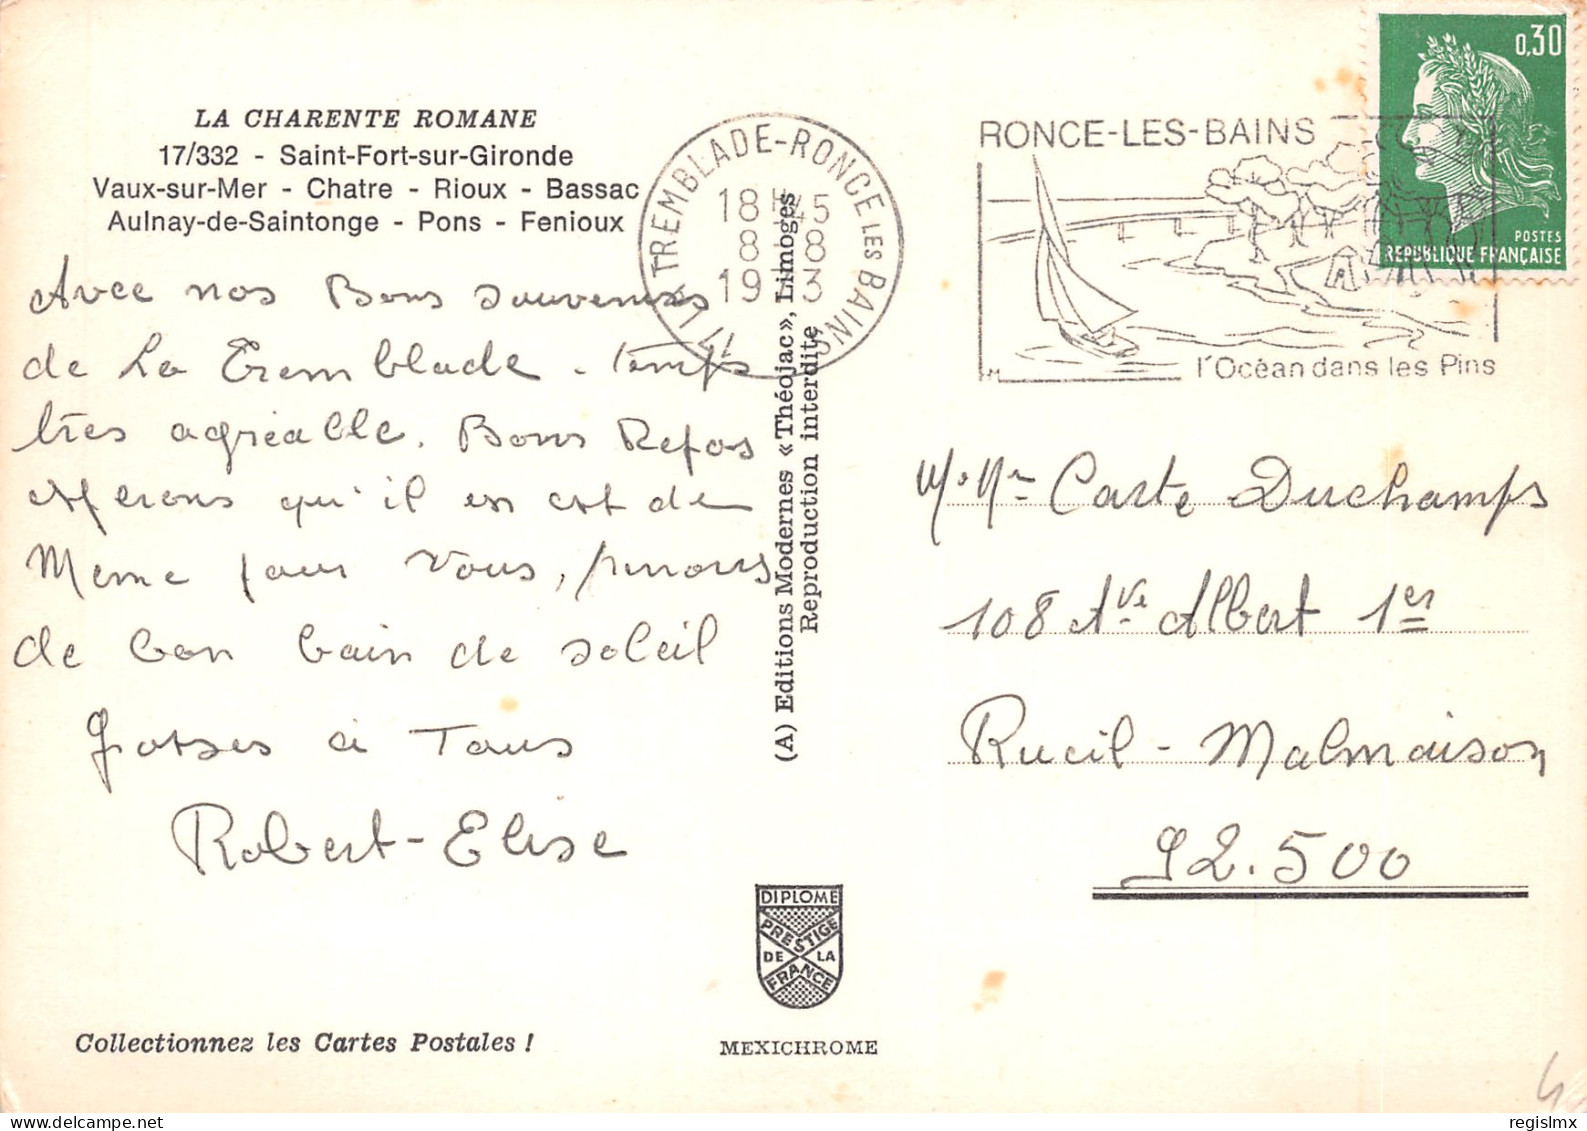 LA CHARENTE ROMANE
17/332 - Saint-Fort-sur-Gironde
Vaux-sur-Mer - Chatre - Rioux - Bassac
Aulnay-de-Saintonge - Pons - Fenioux
Avec nos Bons souvenirs
de La Tremblade - temps
très agréable. Bons Repos
esperons qu'il en est de
Meme pour Vous, prenons
de bon bain de soleil
à Tous
Robert-Elise
Collectionnez les Cartes Postales !
17 LA TREMBLADE-RONCE LES BAINS
18H45
8-8
1973
(A) Editions Modernes «Théojac», Limoges
Reproduction interdite
DIPLOME
PRESTIGE
DE LA
FRANCE
MEXICHROME
RONCE-LES-BAINS
l'Océan dans les Pins
0,30
POSTES
REPUBLIQUE FRANÇAISE
Duchamps
108 Ave Albert 1er
Rueil-Malmaison
92.500
regislmx